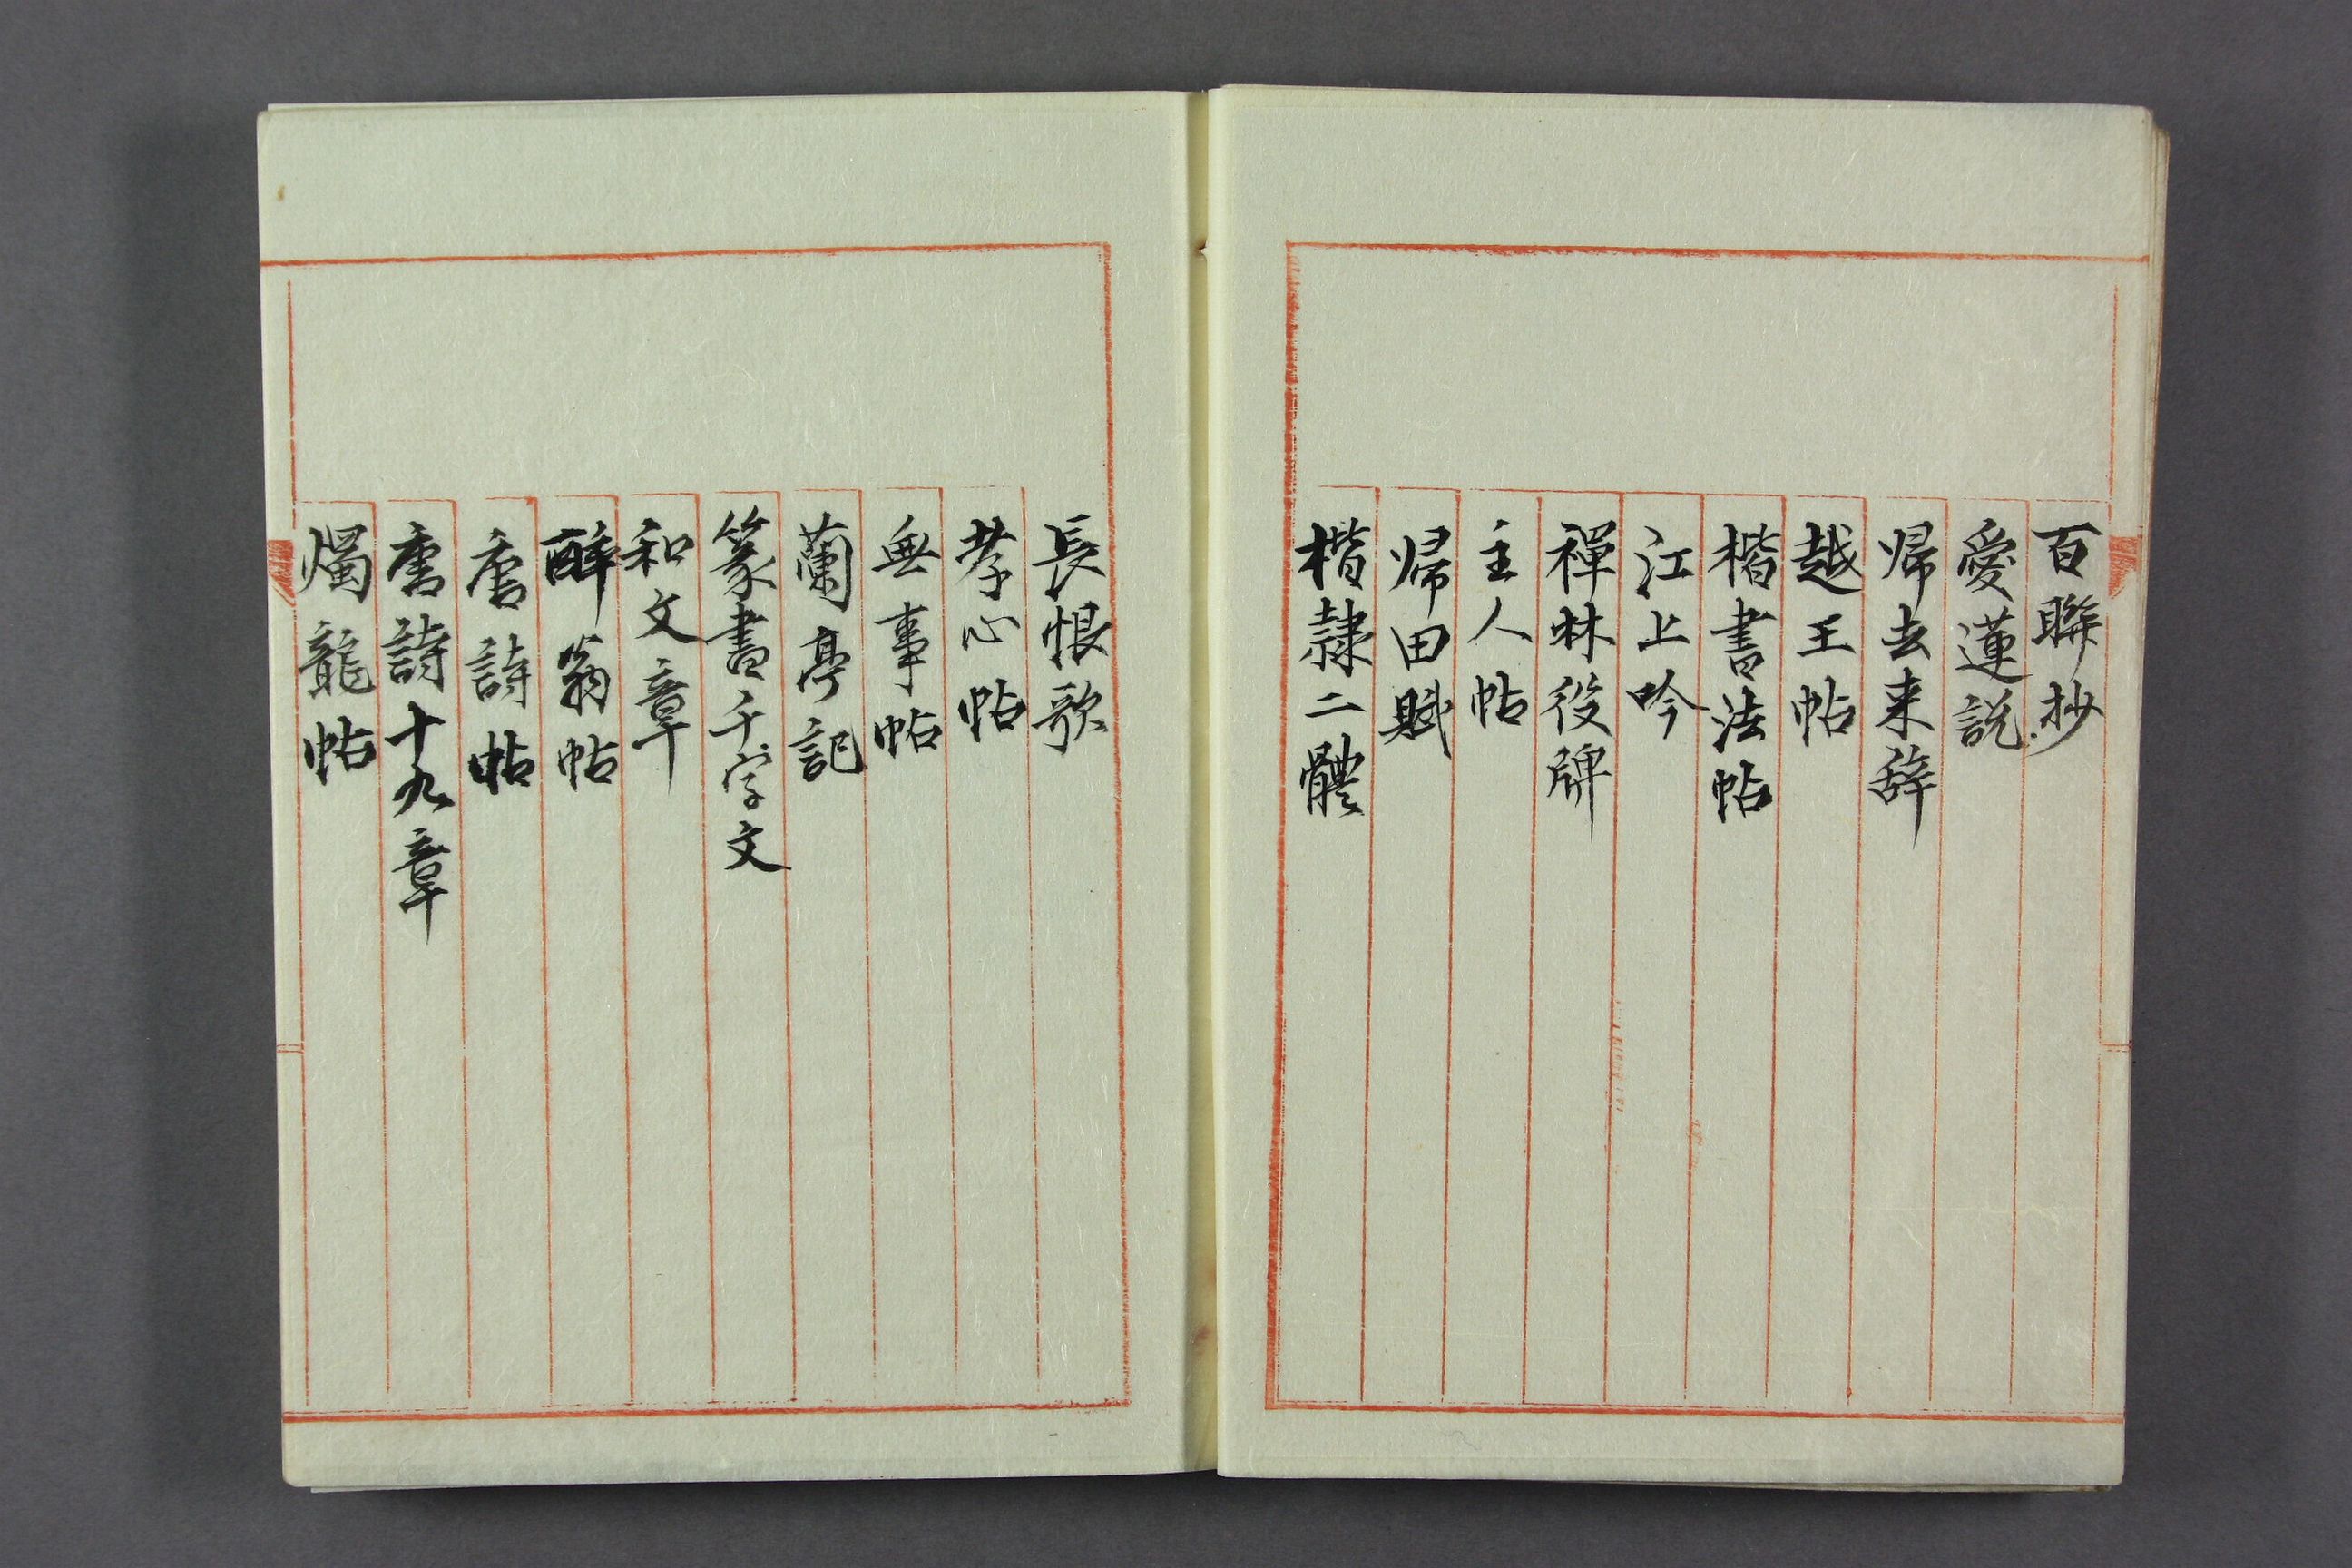 百聯抄
愛蓮説
帰去来辞
越王帖
楷書法帖
江上吟
禅林役牌
主人帖
帰田賦
楷隷二體
長恨歌
孝心帖
無事帖
蘭亭記
篆書千字文
和文章
酔翁帖
唐詩帖
唐詩十九章
燭龍帖